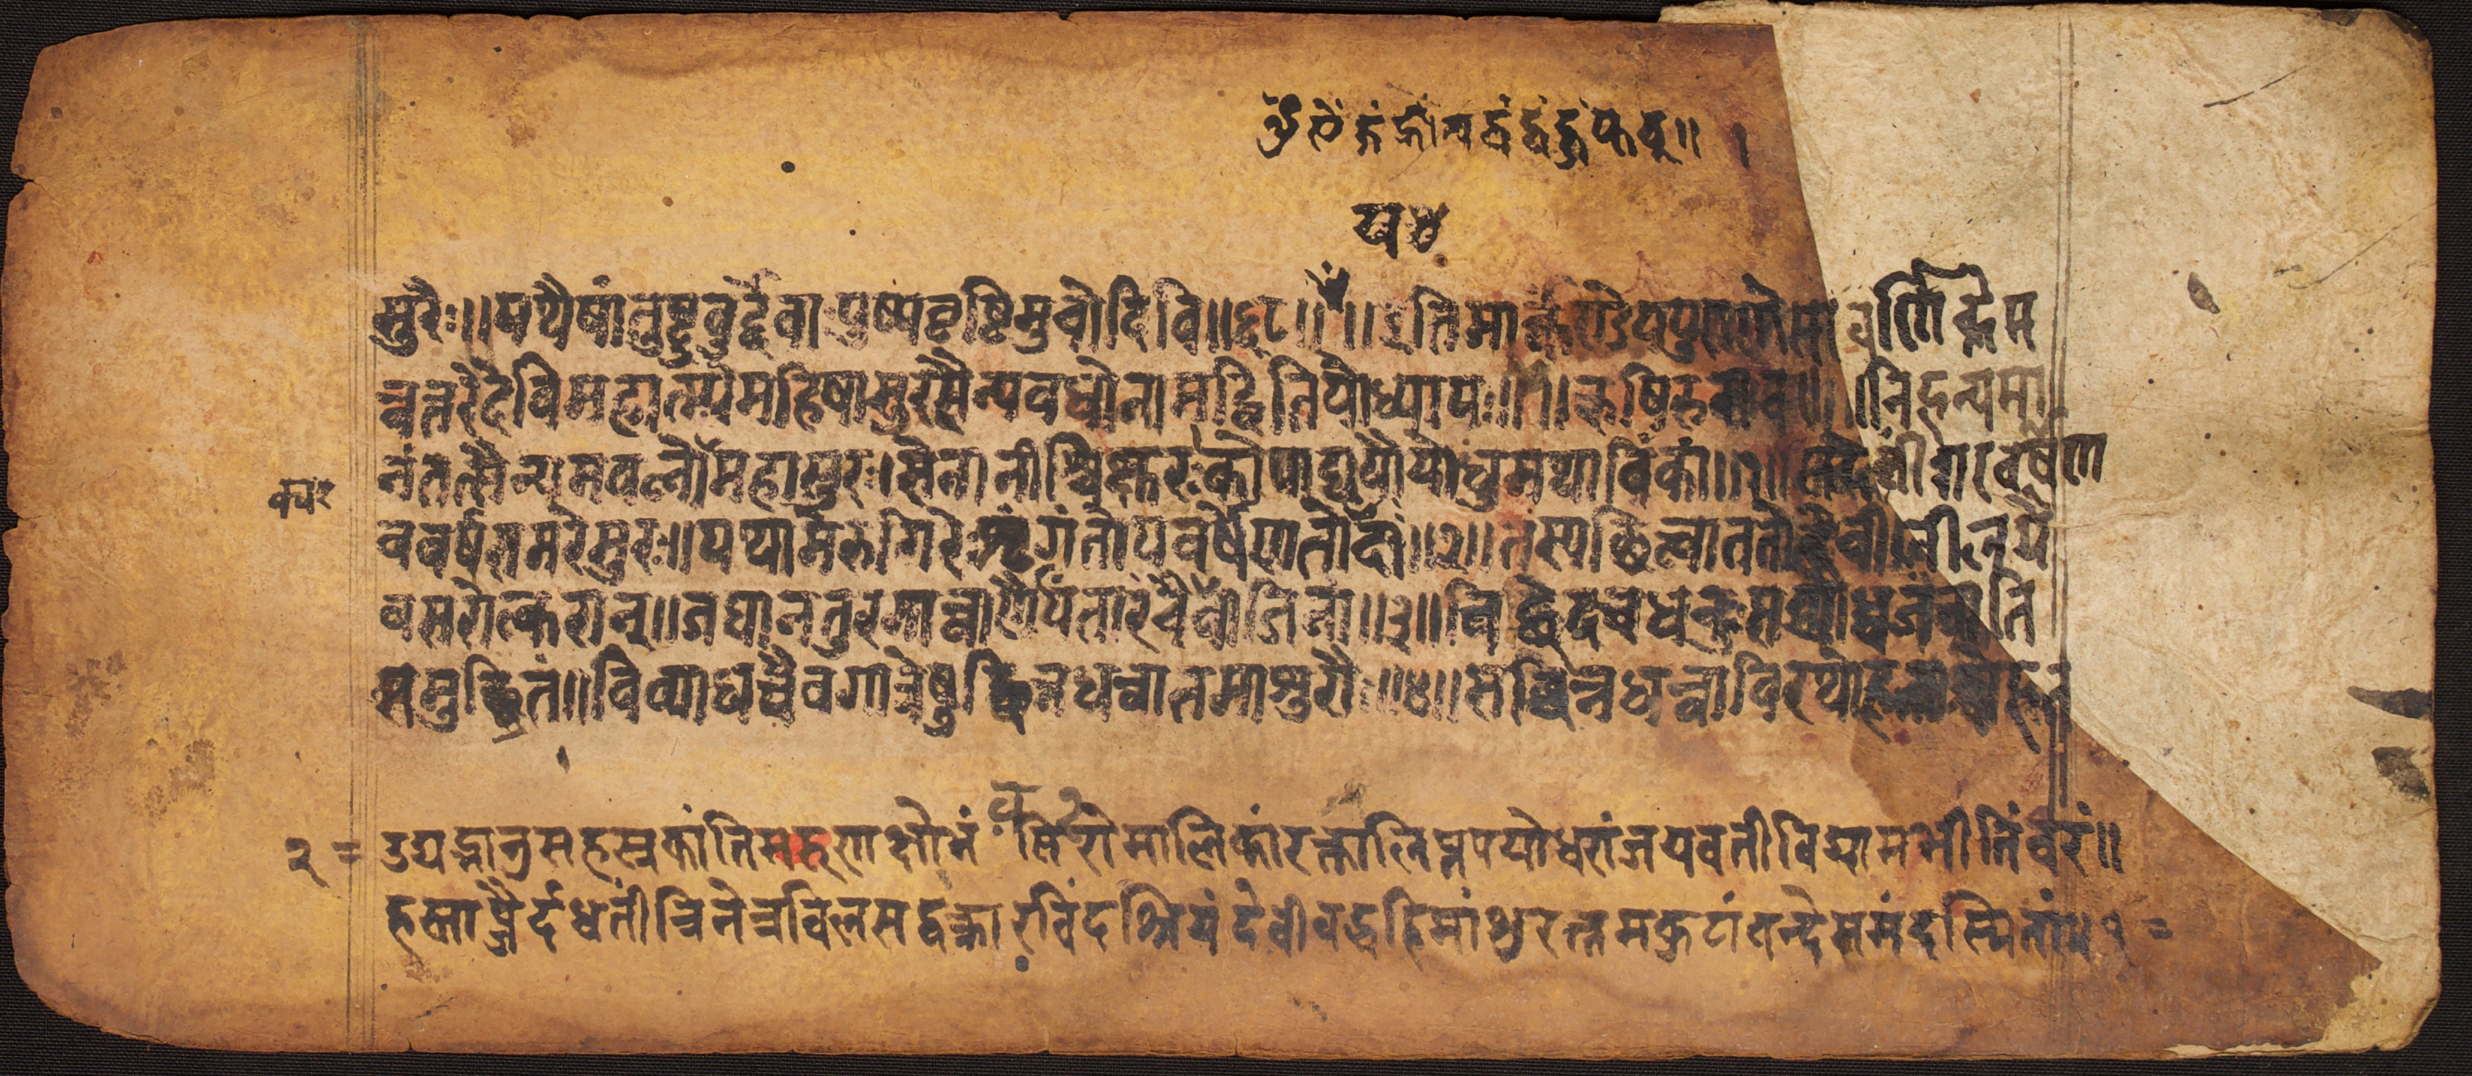 ख ४
सुरैः ॥ यथैषांतुष्टुवुर्द्देवा पुष्पवृष्टिमुचोदिवि ॥ ६८ ॥ ॥ इतिमार्कण्डेयपुराणेसावर्णिकेम
न्वन्तरेदेविमहात्म्येमहिषासुरसैन्यवधोनामद्वितियोध्यायः ॥ १ ॥ ऋषिरुवाच ॥ ॥ निहन्यमा
नंतत्सैन्यमवलोमहासुरः । सेनानीश्चिक्षुरःकोपाद्ययौयोधुमथांविकां ॥ १ ॥ सदेवींशरवर्षेण
क्यः
ववर्षशमरेसुरः ॥ यथामेरुगिरेःशृंगंतोयवर्षेणतोदां ॥ २ ॥ तस्यछित्वाततोदेवीलीलयै
वसरोत्करान् ॥ जघानतुरगान्वाणैर्यंतारंचैववाजिनां ॥ ३ ॥ चिछेदचधनुःसद्योध्वजंचाति
समुछ्रितं ॥ विव्याधचैवगात्रेषुछिन्नधन्वानमाशुगैः ॥ ४ ॥ सछिन्नधन्वाविरथोहताश्वोहत
२ = उद्यद्भानुसहस्रकांतिमरुणक्षौमं शिरोमालिकांरक्तालिप्तपयोधरांजपवतीविद्यामभीतिंवरं ॥
हस्ताब्जैर्दधतींत्रिनेत्रविलसद्वक्त्रारविंदश्रियंदेवीवद्धहिमांशुरत्नमकुटांवन्देसमंदस्मितां ॥ १ =